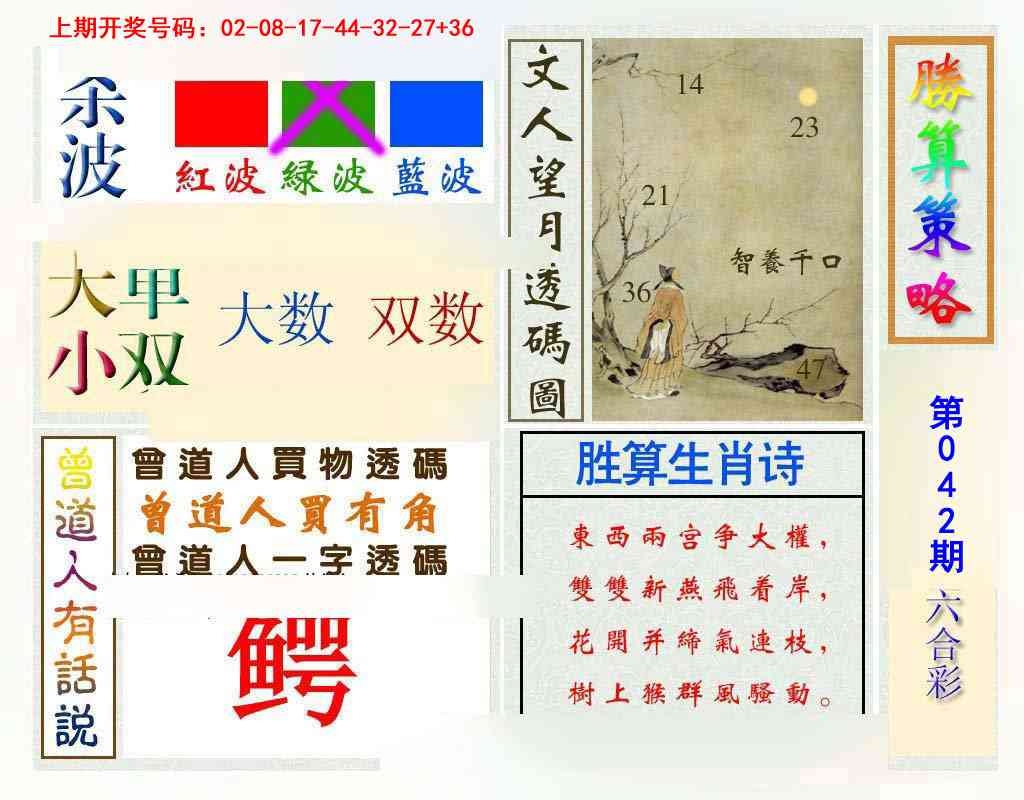 上期开奖号码：02-08-17-44-32-27+36
杀波
紅波 緑波 藍波
大小 甲双
大数 双数
曾道人有話説
曾道人買物透碼
曾道人買有角
曾道人一字透碼
鳄
文人望月透碼圖
14
23
21
智養千口
36
47
胜算生肖诗
東西兩宫争大權，
雙雙新燕飛着岸，
花開并締氣連枝，
樹上猴群風騷動。
勝算策略
第042期
六合彩